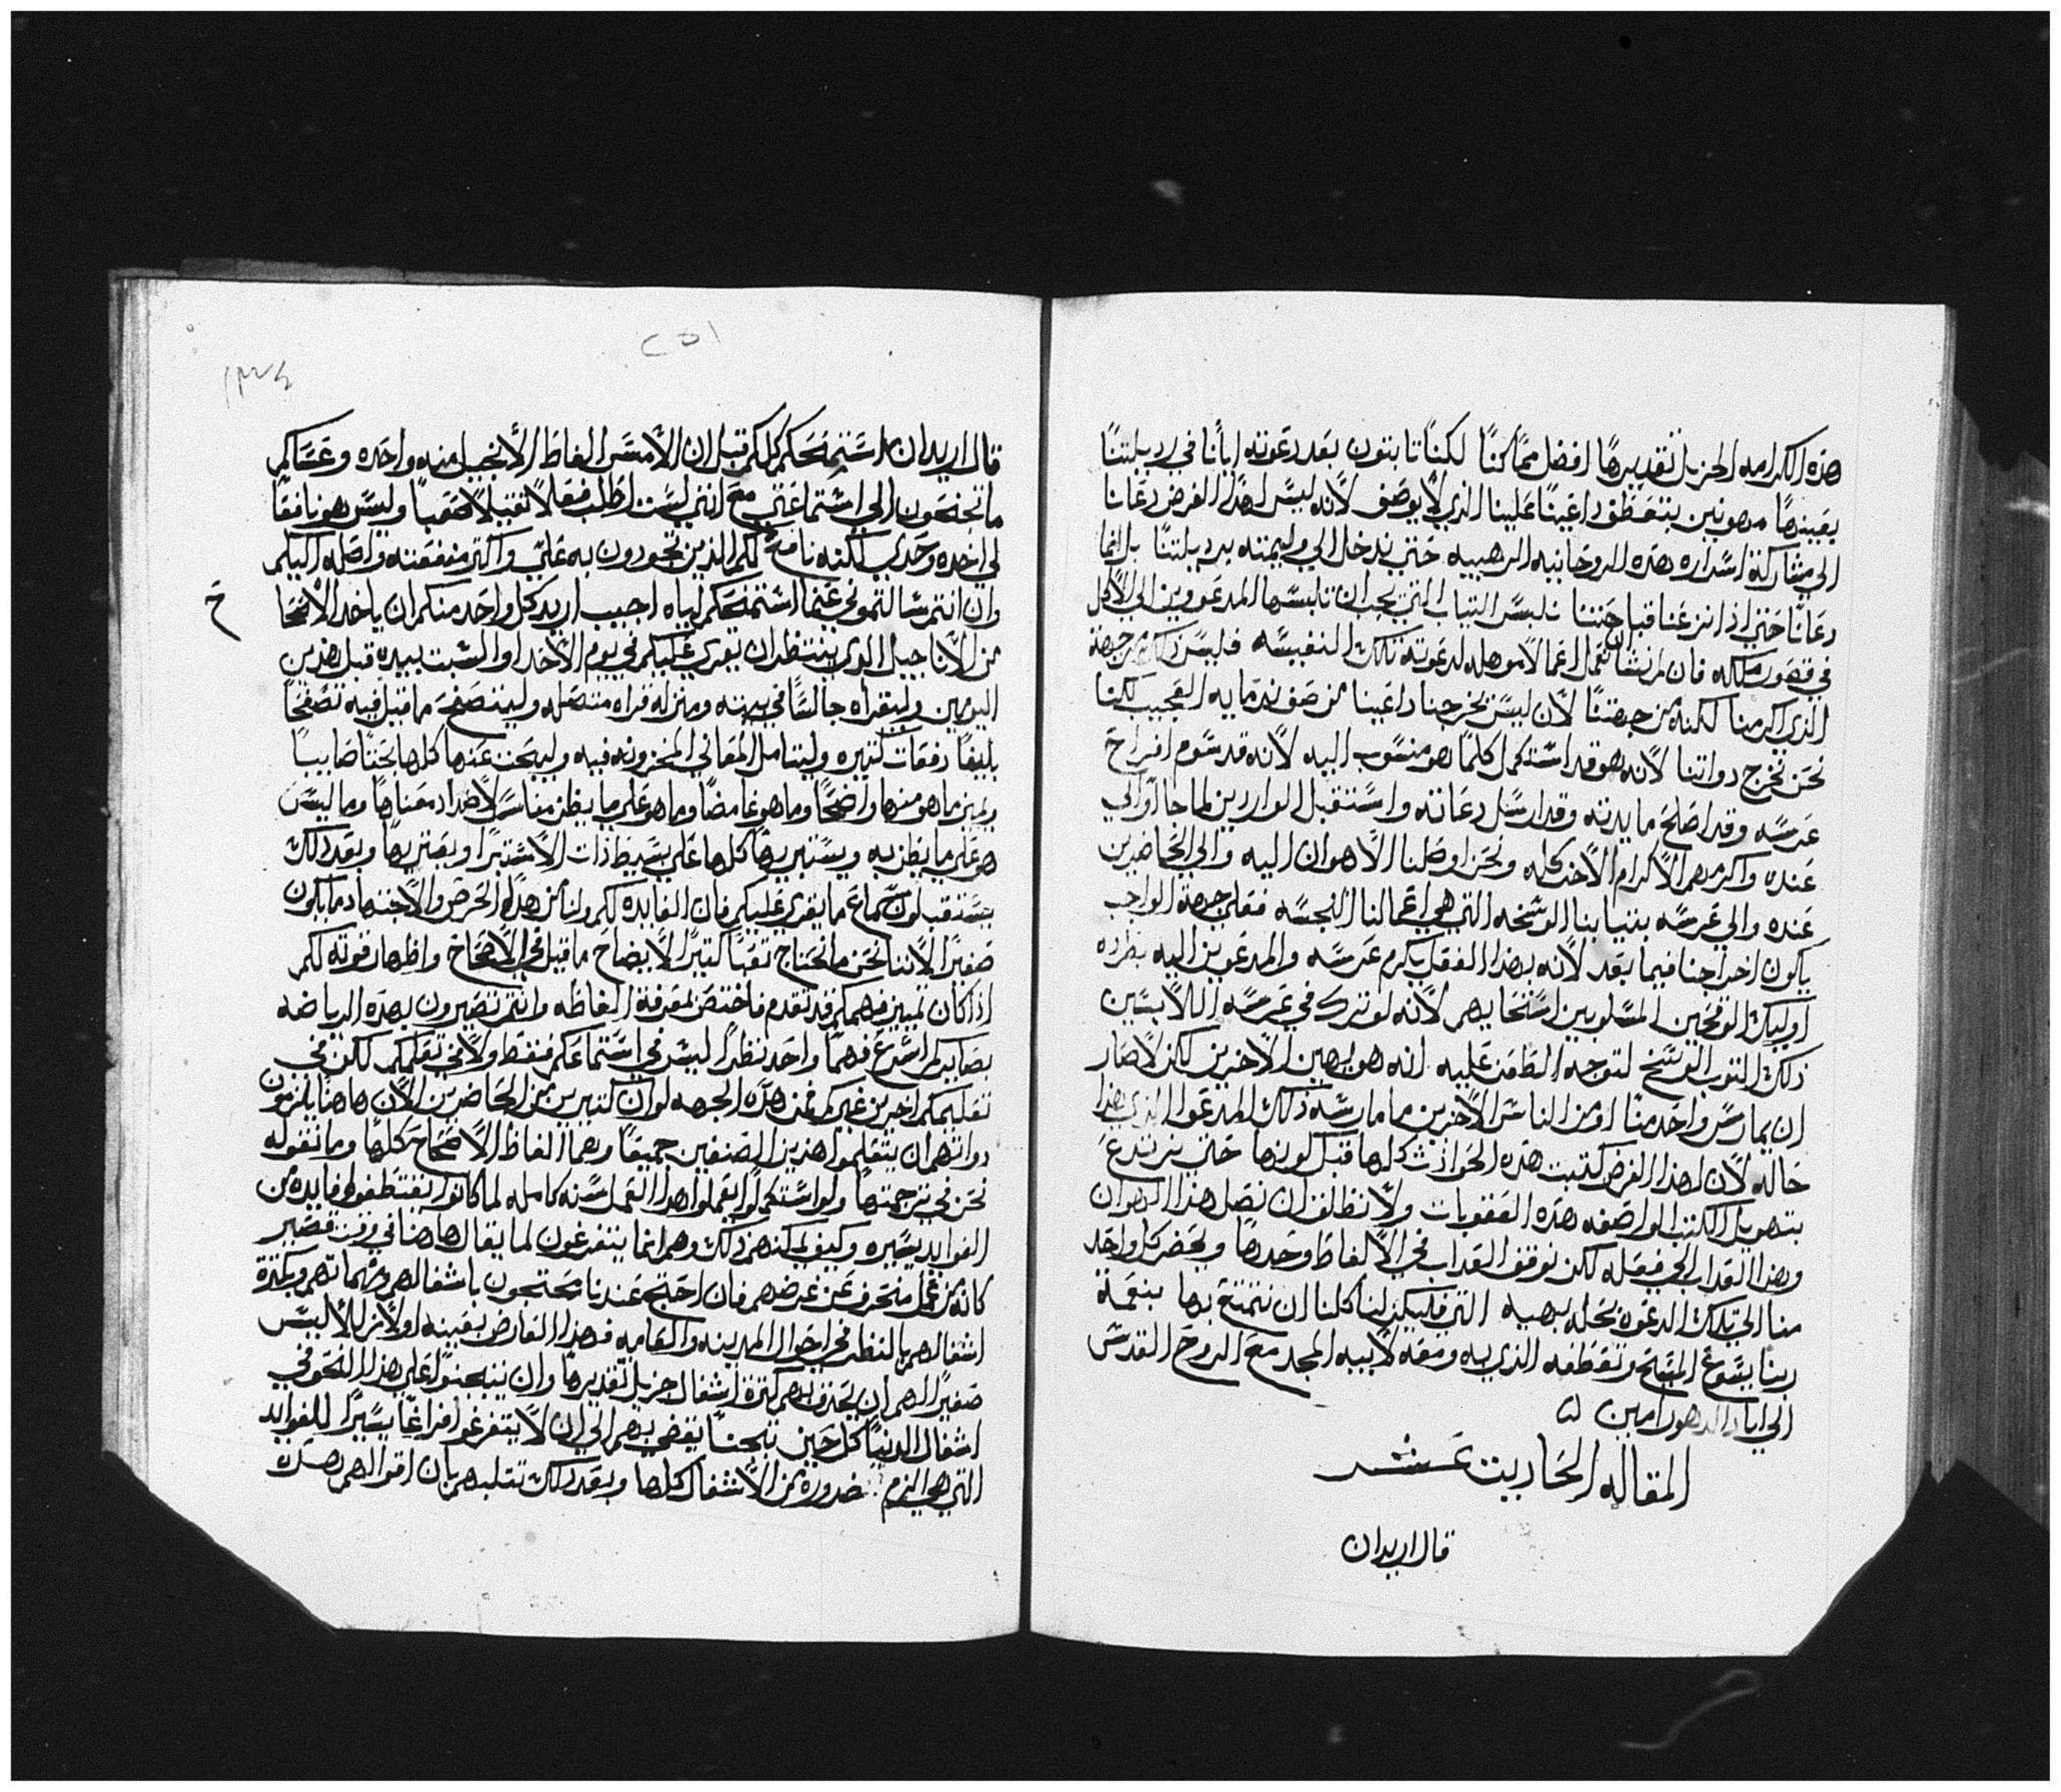 هذه الكرامه الجزيل تقديرها افضل مما كنا لكنا تابتون بعد دعوته ايانا في رديلتنا
بعينها مهونين بتعطف داعينا علينا الذي لا يوصف لانه ليس لهذا الغرض دعانا
الي مشاركة اسراره هذه الروحانيه الرهيبه حتي ندخل الي وليمته برديلتنا بل انما
دعانا حتي اذا نزعنا قباحتنا نلبس التياب التي يجب ان تلبسها المدعوون الي الاكل
في قصور ملكه فان لم نشا ان نعمل اعمالا موهله لدعوته تلك النفيسه فليس ذلك من جهة
الذي اكرمنا لكنه من جهتنا لان ليس يخرجنا داعينا من صف ندمايه العجيب لكنا
نحن نخرج دواتنا لانه هو قد استكمل كلما هو منسوب اليه لانه قد سوم افراح
عرسه وقد اصلح مايدته وقد ارسل دعاته واستقبل الواردين لما جاوا الي
عنده واكرمهم الاكرام الاخر كله ونحن اوصلنا الاهوان اليه والي الحاضرين
عنده والي عرسه بتيابنا الوسخه التي هي اعمالنا النجسه فعلي جهة الواجب
يكون اخراجنا فيما بعد لانه بهذا الفعل يكرم عرسه والمدعوين اليه بطرده
اوليك الوقحين المسلوبين استحيايهم لانه لو ترك في عرسه اللابسين
ذلك التوب الوسخ لتوجه الطعن عليه انه هو يهين الاخرين لكن لا صار
ان يمارس واحد منا او من الناس الاخرين ما مارسه ذلك المدعوا الذي هذا
حاله لان لهذا الغرض كتبت هذه الحوادث كلها قبل كونها حتي نرتدع
بتهويل الكتب الواصفه هذه العقوبات ولا نطلقن ان نصل هذا الهوان
وهذا العداب الي فعله لكن نوقف العداب في الالفاظ وحدها ويحضر كل واحد
منا الي تلك الدعوة بحله بهيه التي فليكن لنا كلنا ان نتمتع بها بنعمة
ربنا يسوع المسيح وتعطفه الذي به ومعه لابيه المجد مع الروح القدس
الي اباد الدهور امين
المقاله الحاديت عشر
قال اريد ان
١٥٢
قال اريد ان استمنحكم كلكم قبل ان الامس الفاظ الانجيل منه واحده وعساكم
ما تجنحون الي استماعتي مع انني لست اطلب فعلا تقيلا صعبا وليس هو نافعا
لي اخده وحدي لكنه نافع لكم الذين تجودون به علي واكتر منفعته واصله اليكم
وان انتم سالتموني عنما استمنحكم اياه اجيب اريد كل واحد منكم ان ياخد الاصحاح
من الاناجيل الدي ينتظر ان يقري عليكم في يوم الاحد او السبت بيده قبل هدين
اليومين وليقراه جالسا في بيته ومنزله قراه متصله وليتصفح ما قيل فيه تصفحا
بليغا دفعات كتيره وليتامل المعاني المخزونه فيه وليبحت عنها كلها بحتا صايبا
ويميز ما هو منها واضحا وما هو غامضا وما هو علي ما يظن مناسبا لاضداد معناها وما ليس
هو علي ما يظن به ويستبريها كلها علي بسيط ذات الاستبرا ويعتريها وبعد دلك
يستقبلون سماع ما يقري عليكم فان الفايده لكم ولنا من هذا الحرص والاجتهاد ما يكون
صغيرا لاننا نحن ما نحتاج تعبا كتيرا لايضاح ما قيل في الاصحاح واظهار قوته لكم
اذا كان تمييز فهمكم قد تقدم فاختص لمعرفة الفاظه وانتم تصيرون بهذه الرياضه
بصايركم اسرع فهما واحد نظرا ليس في استماعكم فقط ولا في تعلمكم لكن في
تعليمكم اخرين غيركم فمن هذه الجهه لو ان كتيرين من الحاضرين الان هاهنا يلزمون
دواتهم ان يتعلموا هذين الصنفين جميعا وهما الفاظ الاصحاح كلها وما نقوله
نحن في ترجمتها ولو استكملوا يعملوا هذا العمل سنه كامله لما كانوا يقتطفون فايده من
الفوايد يسيره وكيف يمكنهم ذلك وهم انما يتفرغون لما يقال هاهنا في وقت قصير
كانه من عمل منحرف عن غرضهم فان احتج عندنا محتجون باشغالهم ومهماتهم وبكترة
اشغالهم بالنظر في احوال المدينه والعامه فهذا العارض بعينه اولا زللا ليس
صغيرا لهم ان يحتف بهم كترة اشغال جزيل تقديرها وان ينبحتوا علي هذا النحو في
اشغال الدنيا كل حين بحتا يفضي بهم الي ان لا يتفرغوا فراغا يسيرا للفوايد
التي هي الزم ضروره من الاشغال كلها وبعد دلك تتلبهم بان اقوالهم هده